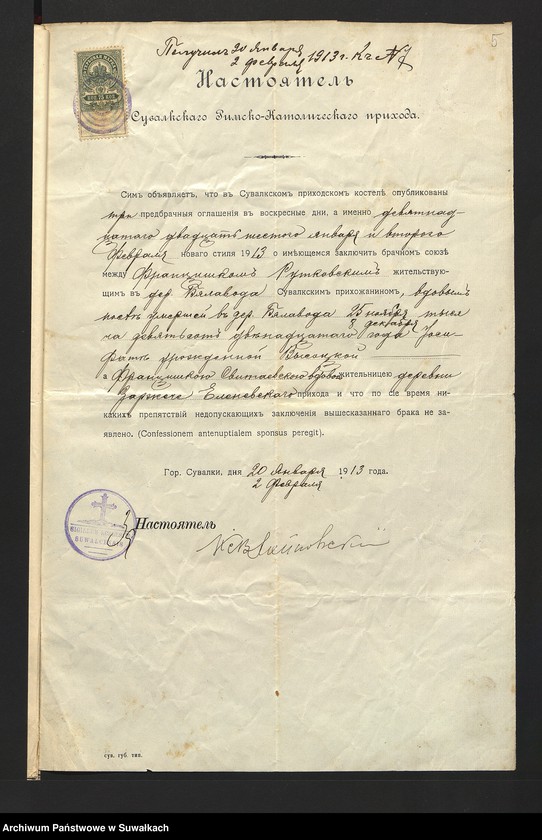 Получилъ 20 Января
2 февраля 1913 г. Къ № 7
5
Настоятель
Сувалкскаго Римско-Католическаго прихода.
Симъ объявляетъ, что въ Сувалкскомъ приходскомъ костелѣ опубликованы
три предбрачныя оглашенія въ воскресные дни, а именно девятнад-
цатаго двадцать шестого января и второго
Февраля новаго стиля 1913 о имѣющемся заключить брачномъ союзѣ
между Францишкомъ Рутковскимъ жительствую-
щимъ въ дер. Бялавода Сувалкскимъ прихожаниномъ, вдовымъ
послѣ умершей въ дер. Бялавода 25 ноября тыся-
8 декабря
ча девятьсотъ двѣнадцатаго года Юсе-
фатѣ урожденной Высоцкой
а Францишкою вдовою жительницею деревни
Еленевскаго прихода и что по сіе время ни-
какихъ препятствій недопускающихъ заключенія вышесказаннаго брака не за-
явлено. (Confessionem antenuptialem sponsus peregit).
Гор. Сувалки, дня 20 Января 1913 года.
2 Февраля
Настоятель
сув. губ. тип.
Archiwum Państwowe w Suwałkach